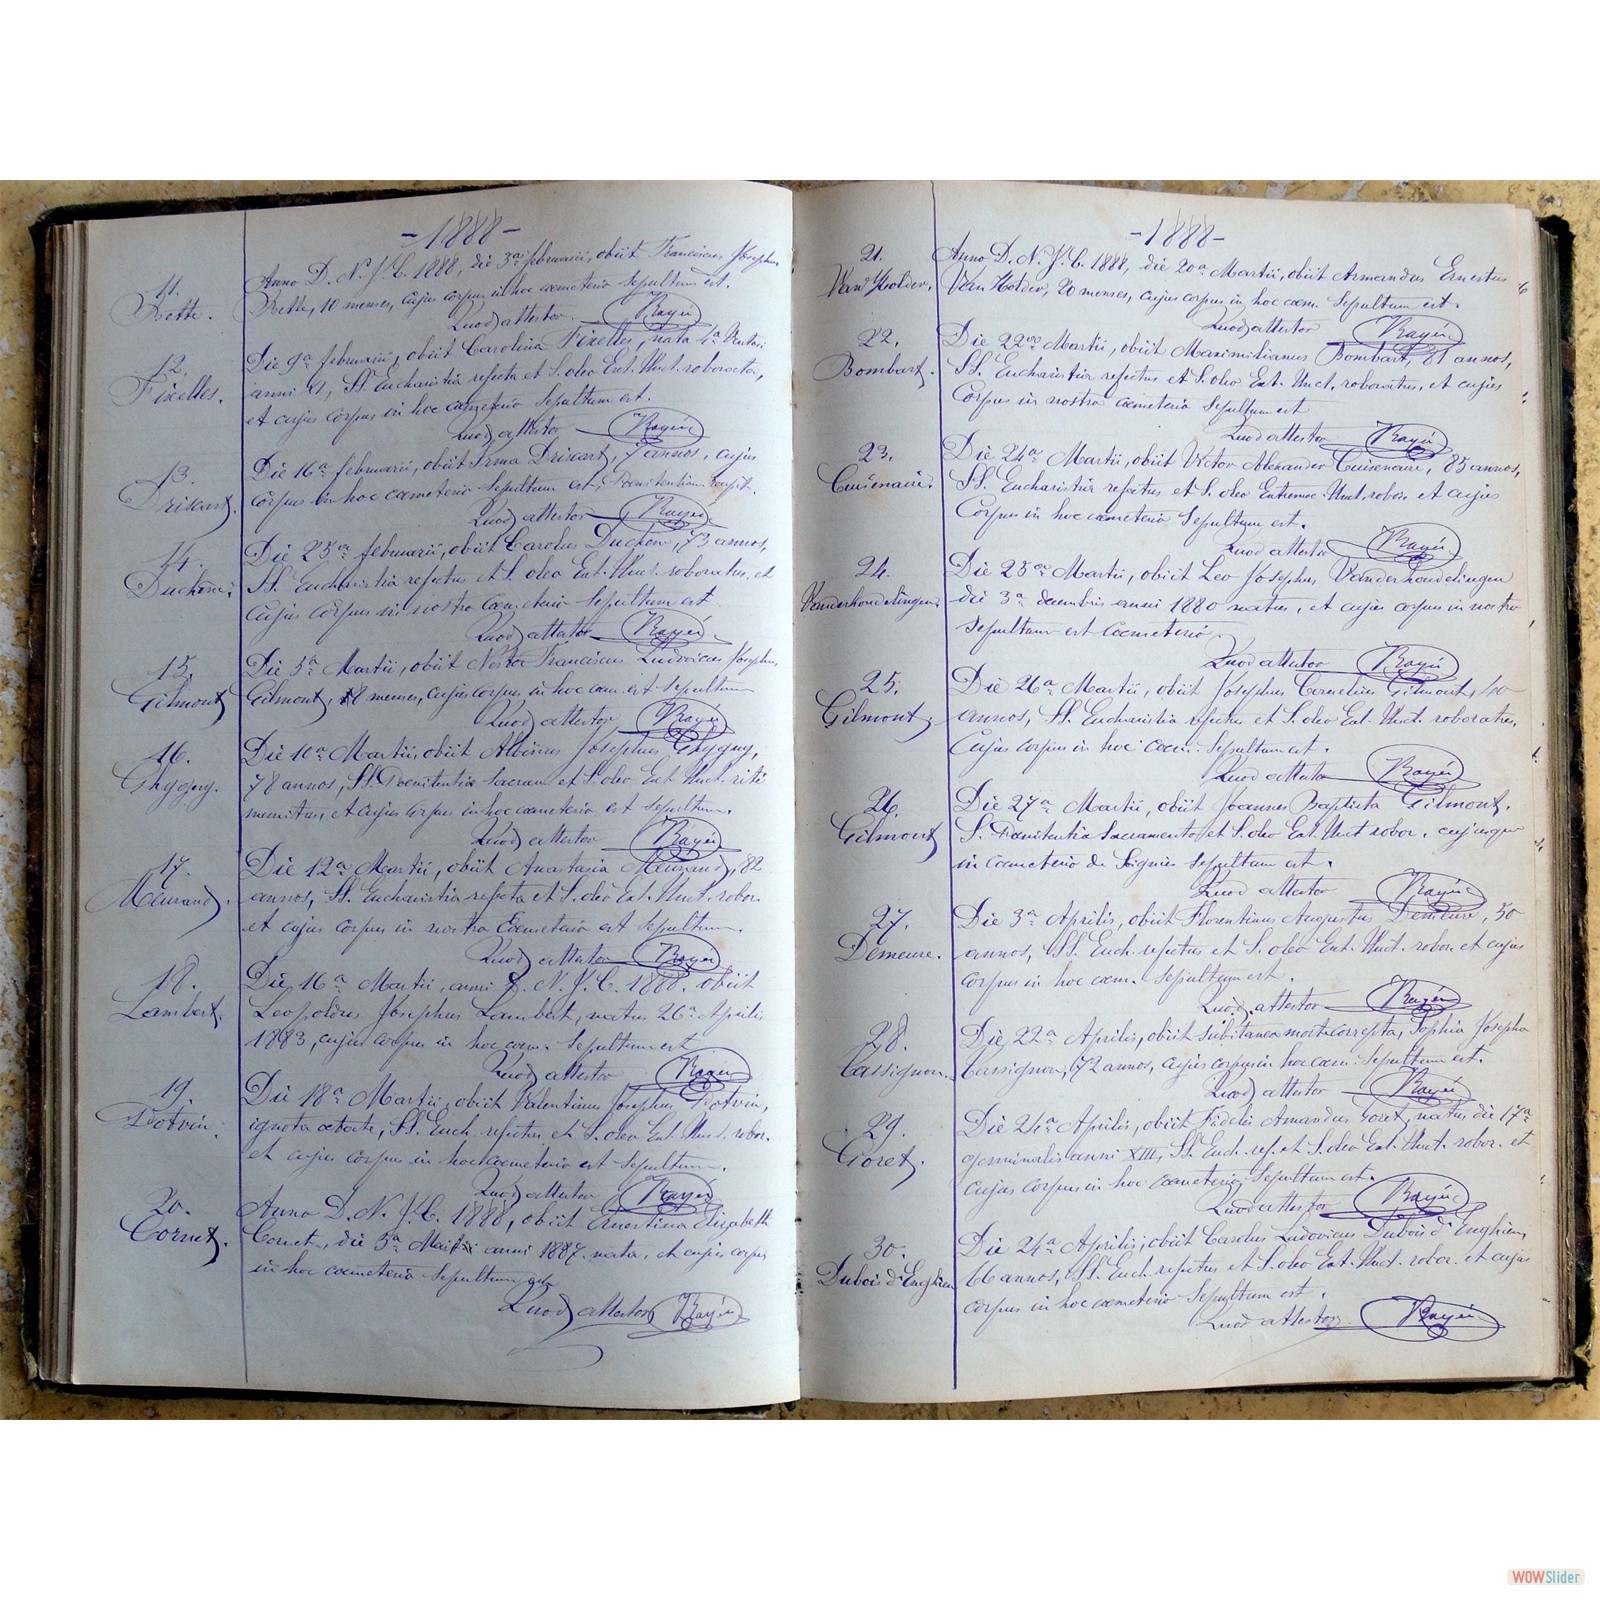 - 1888 -
11. Anno D. N. J. C. 1888, die 3a februarii, obiit Franciscus Josephus
Rette. Rette, 10 menses, cujus corpus in hoc cœmeterio Sepultum est.
Quod attestor
12. Die 9a februarii, obiit Carolina Fixelles, nata 4a
Fixelles. anni 11, SS. Eucharistia refecta et S. oleo Ext. Unct. roborata,
et cujus corpus in hoc cœmeterio Sepultum est.
Quod attestor
13. Die 16a februarii, obiit Irma Driscart, 7 annos, cujus
Driscart. corpus in hoc cœmeterio Sepultum est,
Quod attestor
14. Die 25a februarii, obiit Carolus Duchêne, 73 annos,
Duchêne. SS. Eucharistia refectus et S. oleo Ext. Unct. roboratus, et
cujus corpus in nostro Cœmeterio Sepultum est
Quod attestor
15. Die 5a Martii, obiit Nestor Franciscus Ludovicus Josephus
Gilmont Gilmont, 18 menses, cujus corpus in hoc cœm. est Sepultum
Quod attestor
16. Die 10a Martii, obiit Albinus Josephus Ghygny,
Ghygny. 78 annos, SS. Pœnitentiæ Sacram. et S. oleo Ext. Unct. rite
munitus, et cujus corpus in hoc cœmeterio est Sepultum.
Quod attestor
17. Die 12a Martii, obiit Anastasia Meurand, 82
Meurand. annos, SS. Eucharistia refecta et S. oleo Ext. Unct. robor.
et cujus corpus in nostro Cœmeterio est Sepultum.
Quod attestor
18. Die 16a Martii, anni D. N. J. C. 1888. obiit
Lambert. Leopoldus Josephus Lambert, natus 26a Aprilis
1883, cujus corpus in hoc cœm. Sepultum est
Quod attestor
19. Die 18a Martii, obiit Valentinus Josephus Potvin,
Potvin. ignota ætate, SS. Euch. refectus, et S. oleo Ext. Unct. robor.
et cujus corpus in hoc cœmeterio est Sepultum.
Quod attestor
20. Anno D. N. J. C. 1888, obiit Ernestina Elizabeth
Cornet. Cornet, die 5a anni 1887 nata, et cujus corpus
in hoc cœmeterio Sepultum est
Quod attestor
- 1888 -
21. Anno D. N. J. C. 1888, die 20a Martii, obiit Armandus Ernestus
Van Holder. Van Holder, 20 menses, cujus corpus in hoc cœm. Sepultum est.
Quod attestor
22. Die 22a Martii, obiit Maximilianus Bombart, 81 annos,
Bombart. SS. Eucharistia refectus et S. oleo Ext. Unct. roboratus, et cujus
Corpus in nostro cœmeterio Sepultum est
Quod attestor
23. Die 24a Martii, obiit Victor Alexander Cuisenaire, 85 annos,
Cuisenaire. SS. Eucharistia refectus et S. oleo Extremæ Unct. robor. et cujus
Corpus in hoc cœmeterio Sepultum est.
Quod attestor
24. Die 25a Martii, obiit Leo Josephus Vanderhoudelingen
Vanderhoudelingen. die 3a decembris anni 1880 natus, et cujus corpus in nostro
Sepultum est Cœmeterio.
Quod attestor
25. Die 26a Martii, obiit Josephus Cornelius Gilmont, 40
Gilmont. annos, SS. Eucharistia refectus et S. oleo Ext. Unct. roboratus,
Cujus corpus in hoc cœm. Sepultum est.
Quod attestor
26. Die 27a Martii, obiit Joannes Baptista Gilmont.
Gilmont S. Pœnitentia Sacramento et S. oleo Ext. Unct robor. cujusque
in cœmeterio de Soignies Sepultum est.
Quod attestor
27. Die 3a Aprilis, obiit Florentinus Augustus Demeure, 50
Demeure. annos, SS. Euch. refectus et S. oleo Ext. Unct. robor. et cujus
corpus in hoc cœm. Sepultum est.
Quod attestor
28. Die 22a Aprilis, obiit subitanea morte correpta, Sophia Josepha
Cassignon. Cassignon, 72 annos, cujus corpus in hoc cœm. Sepultum est.
Quod attestor
29. Die 24a Aprilis, obiit Fidelis Amandus Goret, natus die 17a
Goret. germinalis anni XIII, SS. Euch. ref. et S. oleo Ext. Unct. robor. et
cujus corpus in hoc cœmeterio Sepultum est.
Quod attestor
30. Die 24a Aprilis, obiit Carolus Ludovicus Dubois d'Enghien,
Dubois d'Enghien 66 annos, SS. Euch. refectus et S. oleo Ext. Unct. robor. et cujus
corpus in hoc cœmeterio Sepultum est.
Quod attestor
WOWSlider